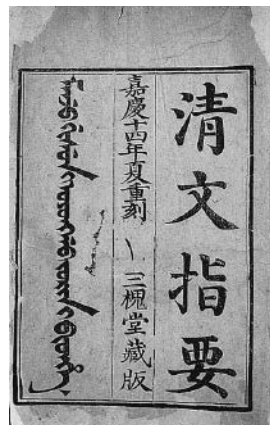 清文指要
嘉慶十四年夏重刻 三槐堂藏版
ᠮᠠᠨᠵᡠ ᡤᡳᠰᡠᠨ ᡳ ᠣᠶᠣᠩᡤᠣ ᠵᠣᡵᡳᠨ ᡳ ᠪᡳᡨᡥᡝ